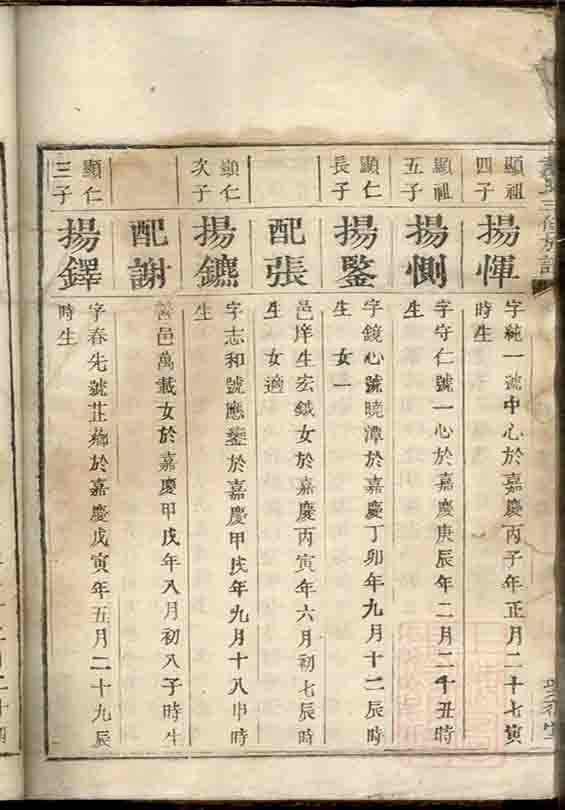 顯祖四子
揚惲
字純一號中心於嘉慶丙子年正月二十七寅時生
顯祖五子
揚惻
字守仁號一心於嘉慶庚辰年二月二十丑時生
顯仁長子
揚鑒
字鏡心號曉潭於嘉慶丁卯年九月十二辰時生 女一
配張
邑庠生宏鉞女於嘉慶丙寅年六月初七辰時生 女適
顯仁次子
揚鑣
字志和號應鑾於嘉慶甲戌年九月十八申時生
配謝
善邑萬載女於嘉慶甲戌年八月初八子時生
顯仁三子
揚鐸
字春先號芷鄉於嘉慶戊寅年五月二十九辰時生